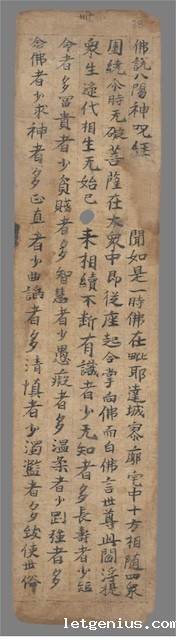 佛說八陽神呪經
聞如是一時佛在毗耶達城寥廓宅中十方相隨四衆
圍繞介時无礙菩薩在大衆中即從座起合掌向佛而白佛言世尊此閻浮提
衆生遞代相生无始已來相續不断有識者少无知者多長壽者少短
命者多冨貴者少貧賤者多智慧者少愚癡者多温柔者少剛強者多
念佛者少求神者多正直者少曲諂者多清慎者少濁濫者多致使世俗
letgenius.com